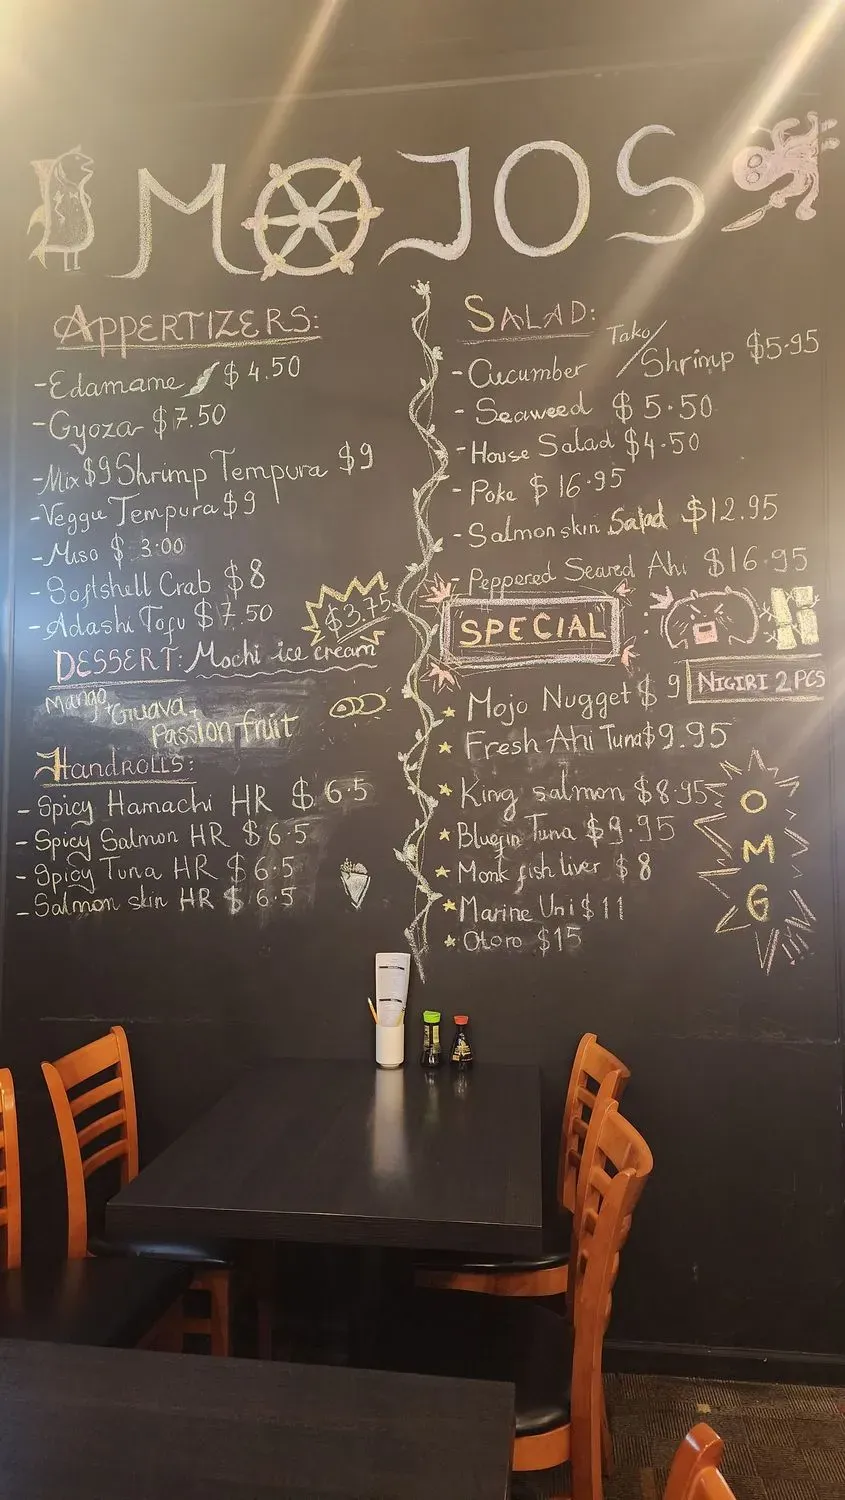 MOJOS
APPERTIZERS:
-Edamame $4.50
-Gyoza $7.50
-Mix $9 Shrimp Tempura $9
-Veggu Tempura $9
-Miso $3.00
-Softshell Crab $8
-Adashi Tofu $7.50
$3.75
DESSERT: Mochi ice cream
Mango, Guava,
Passion fruit
HANDROLLS:
-Spicy Hamachi HR $6.5
-Spicy Salmon HR $6.5
-Spicy Tuna HR $6.5
-Salmon skin HR $6.5
SALAD:
-Cucumber Tako/Shrimp $5.95
-Seaweed $5.50
-House Salad $4.50
-Poke $16.95
-Salmon skin Salad $12.95
-Peppered Seared Ahi $16.95
"SPECIAL"
NIGIRI 2 PCS
Mojo Nugget $9
Fresh Ahi Tuna $9.95
King salmon $8.95
Bluefin Tuna $9.95
Monk fish liver $8
Marine Uni $11
Otoro $15
OMG